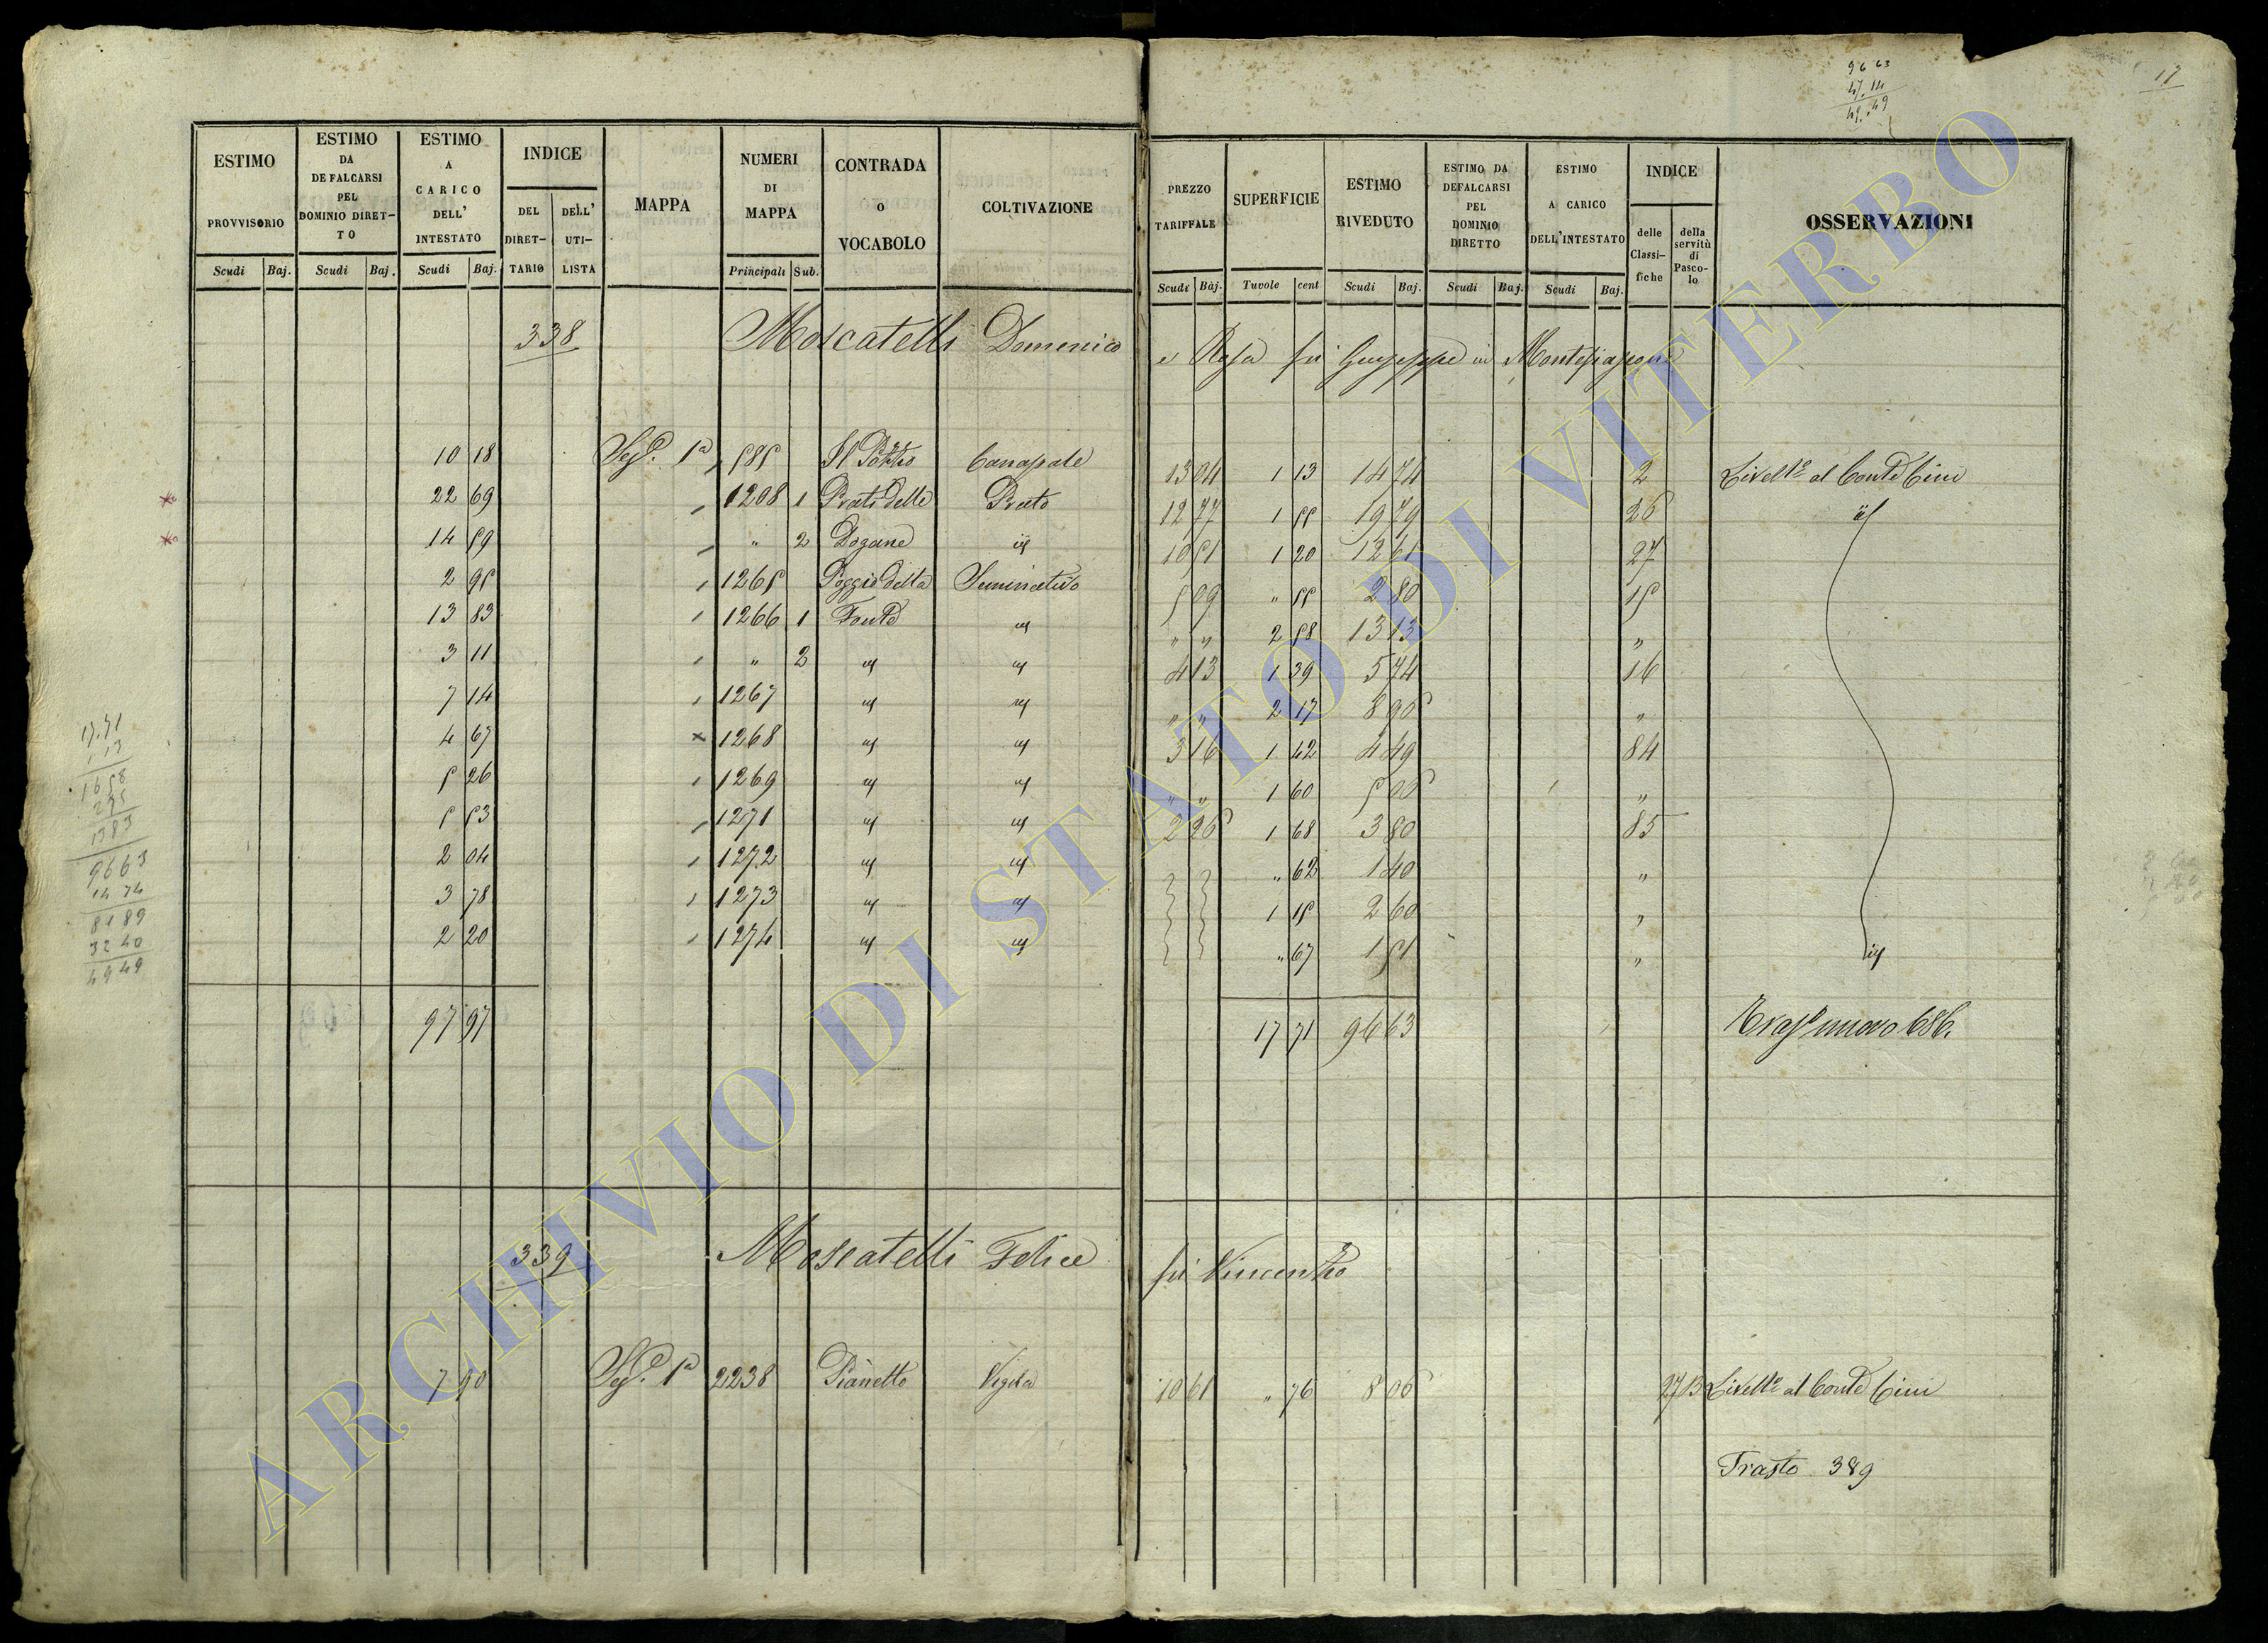 17
96 63
47. 14
49. 49
ESTIMO PROVVISORIO
Scudi Baj.
ESTIMO DA DEFALCARSI PEL DOMINIO DIRET-TO
Scudi Baj.
ESTIMO A CARICO DELL' INTESTATO
Scudi Baj.
INDICE
DEL DIRET-TARIO
DELL' UTI-LISTA
MAPPA
NUMERI DI MAPPA
Principali Sub.
CONTRADA o VOCABOLO
COLTIVAZIONE
PREZZO TARIFFALE
Scudi Baj.
SUPERFICIE
Tavole cent
ESTIMO RIVEDUTO
Scudi Baj.
ESTIMO DA DEFALCARSI PEL DOMINIO DIRETTO
Scudi Baj.
ESTIMO A CARICO DELL'INTESTATO
Scudi Baj.
INDICE
delle Classi-fiche
della servitù di Pasco-lo
OSSERVAZIONI
338 Moscatelli Domenico e Rosa fu Giuseppe in Montefiascone
10 18 Sez.e 1a 585 Il Pozzo Canapale 13 04 1 13 14 74 2 Livell.o al Conte Cini
22 69 1208 1 Prati delle Prato 12 77 1 55 19 79 26 id
14 59 " 2 Dogane id 10 51 1 20 12 61 27
2 95 1265 Poggio della Seminativo 5 09 " 55 2 80 15
13 83 1266 1 Fonte id " " 2 58 13 13 "
3 11 " 2 id id 4 13 1 39 5 74 16
7 14 1267 id id " " 2 17 8 96 "
4 67 1268 id id 3 16 1 42 4 49 84
5 26 1269 id id " " 1 60 5 06 "
5 53 1271 id id 2 26 1 68 3 80 85
2 04 1272 id id " 62 1 40 "
3 78 1273 id id 1 15 2 60 "
2 20 1274 id id " 67 1 51 " id
97 97 17 71 96 63 Trasp nuovo 686.
17.71
1 13
1658
275
1383
9663
14 74
8189
32 40
4949
339 Moscatelli Felice fu Vincenzo
7 90 Sez.e 1a 2238 Pianetto Vigna 10 61 " 76 8 06 Livell.o al Conte Cini
Trasto 389
ARCHIVIO DI STATO DI VITERBO